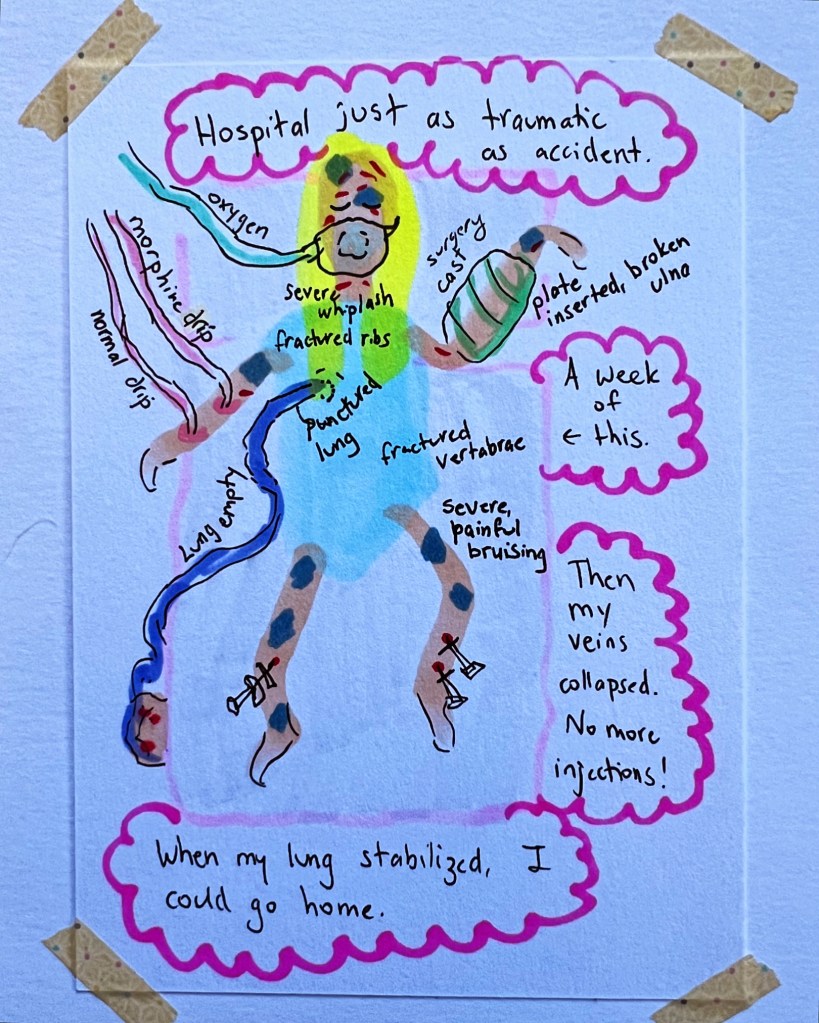 Hospital just as traumatic
as accident.
oxygen
morphine drip
normal drip
surgery
cast
plate
inserted, broken
ulna
severe
whiplash
fractured ribs
punctured
lung
fractured
vertabrae
A week
of
← this.
Lung empty
severe,
painful
bruising
Then
my
veins
collapsed.
No more
injections!
When my lung stabilized, I
could go home.